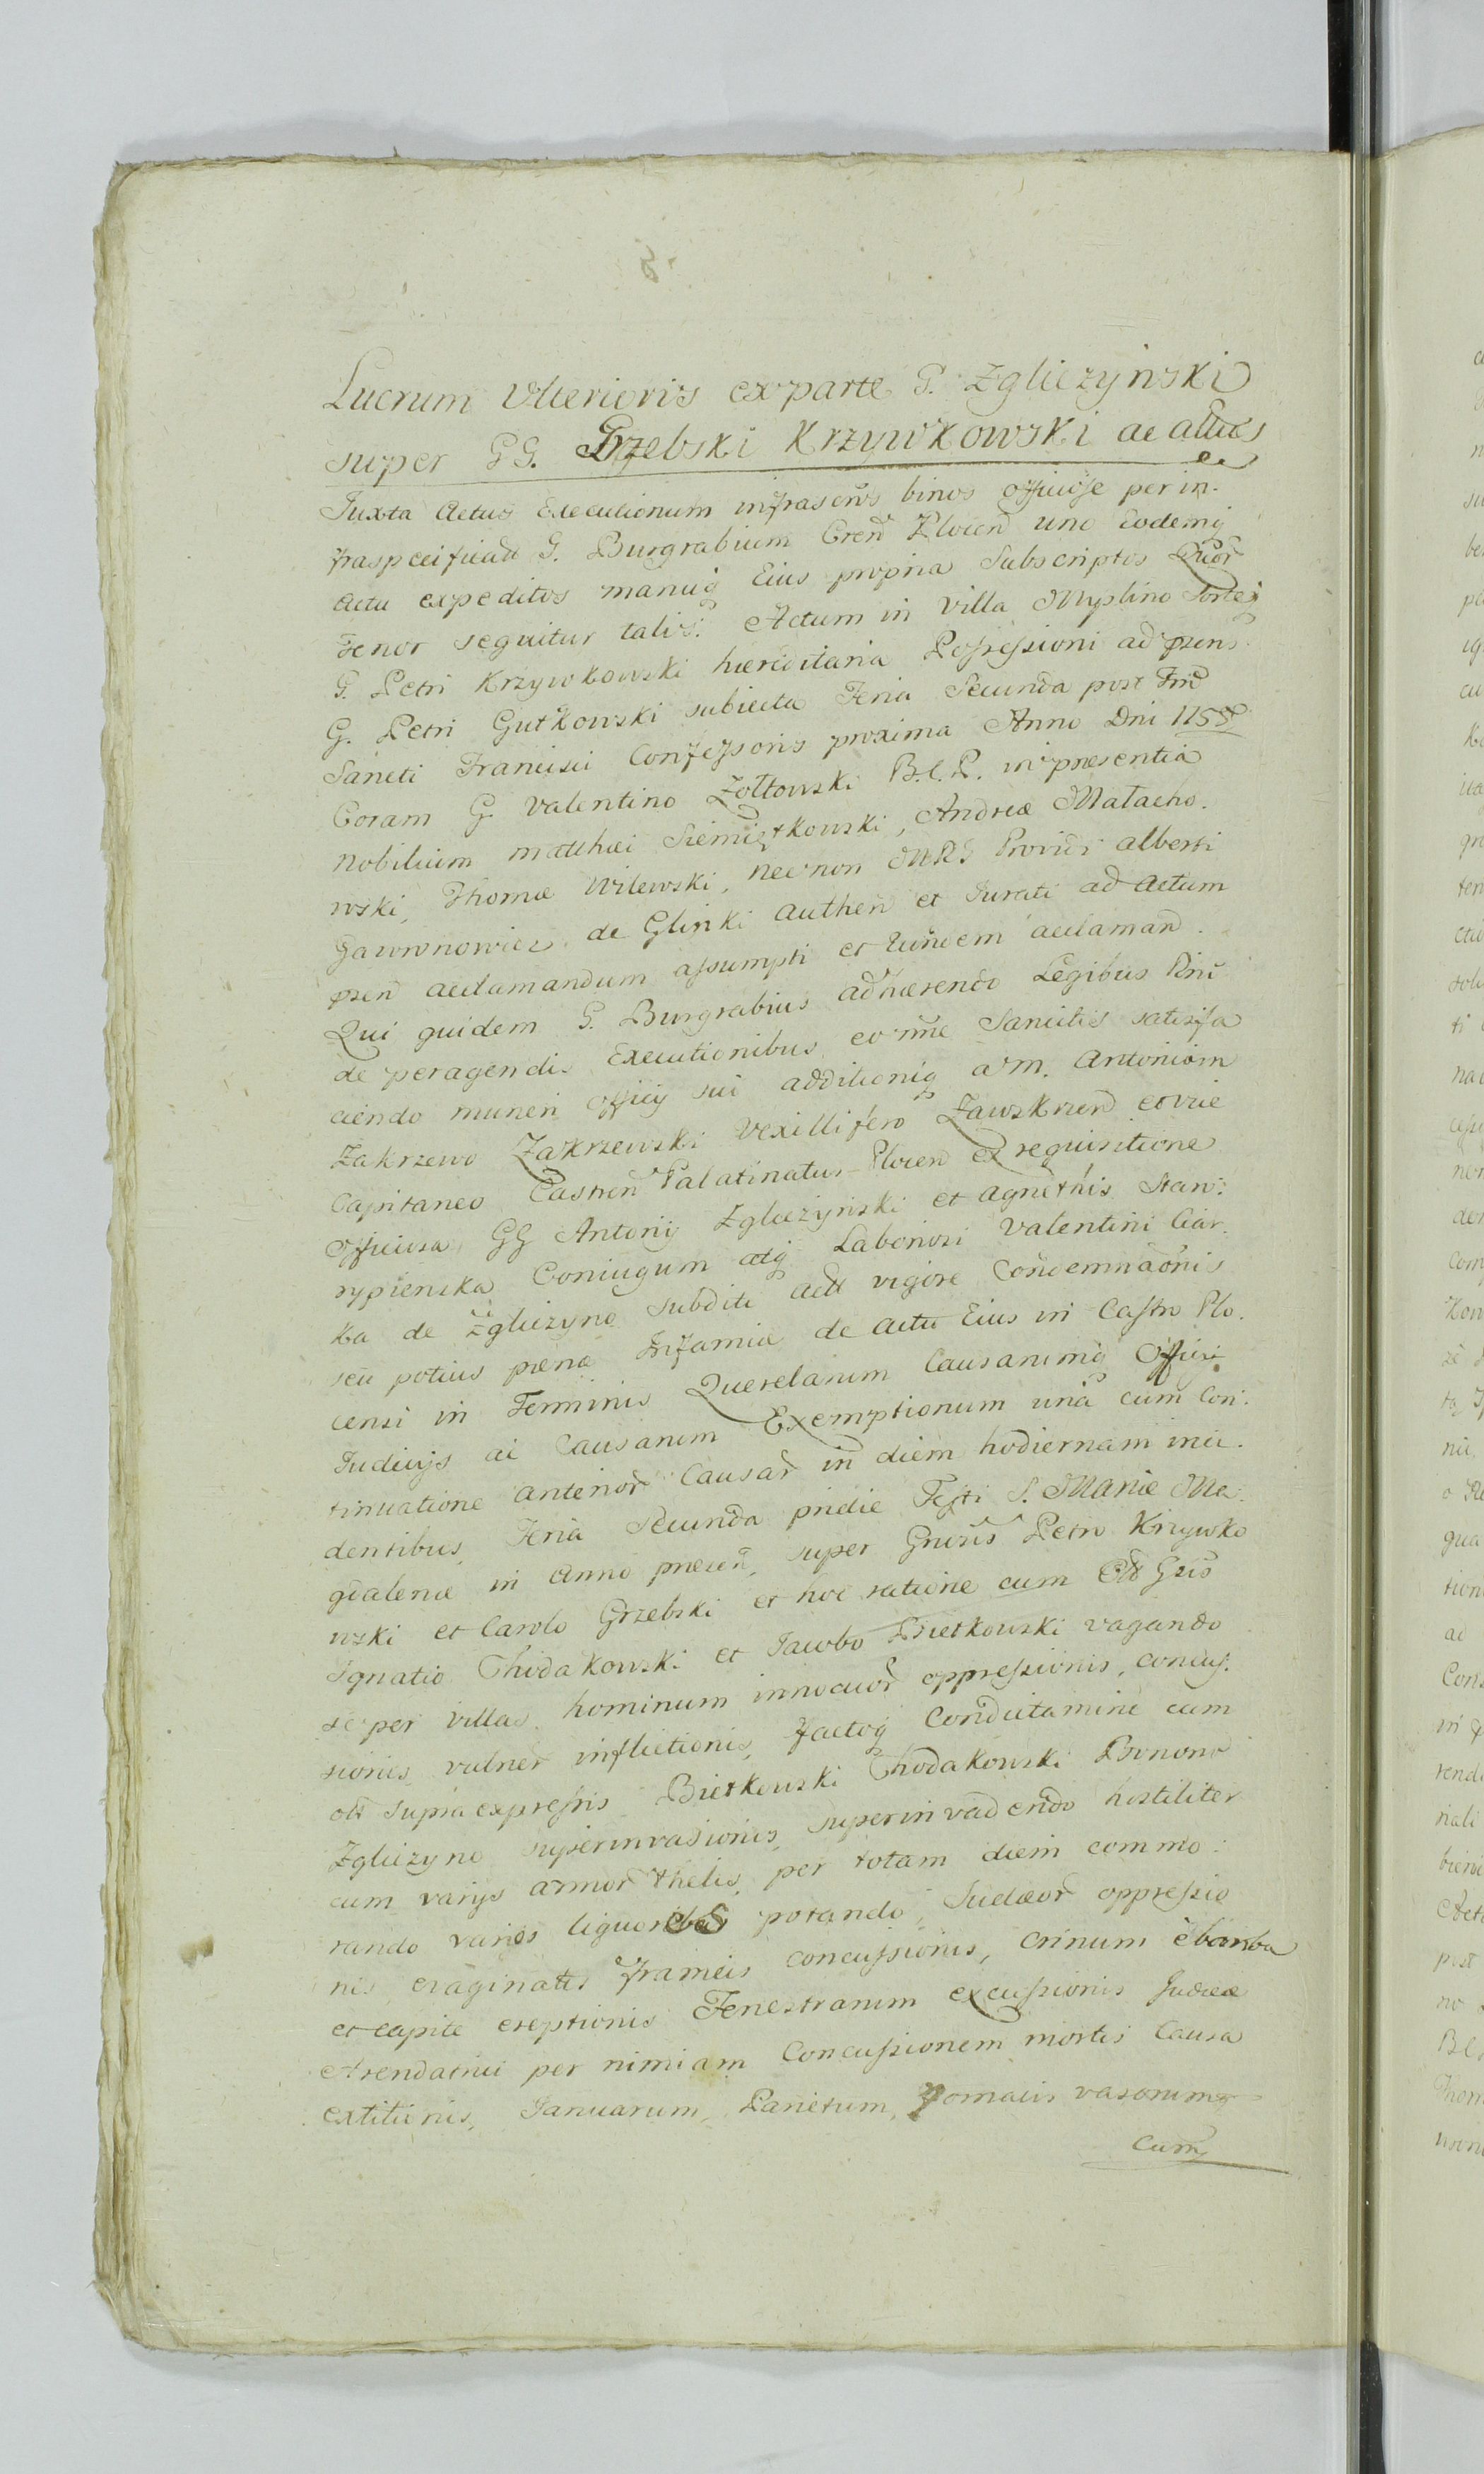 Lucrum Ulterioris ex parte G. Zgliczynski
super GG. Grzebski Krzywkowski ac alios
Juxta Actus Executionum infrascrōs binos officiose per in-
fraspecificatt G. Burgrabium Cren̄ Plocen̄ uno Eodemq
Actu expeditos manuq Eius propria Subscriptos Quor̄
Tenor sequitur talis. Actum in Villa Myslino Sortesq
G. Petri Krzywkowski hæreditaria Possessioni ad præns
G. Petri Gutkowski subiecta Feria Secunda post Fm̄
Sancti Francisci Confessoris proxima Anno Dni
Coram G Valentino Zołtowski B.C.P. in præsentia
Nobilium Matthæi Siemiątkowski, Andreæ Małacho-
wski, Thomæ Wilewski, nec non Providi Alberti
Gawronowicz de Glinki Authen̄ et Jurati ad Actum
præn̄ acclamandum assumpti et Eundem acclaman̄.
Qui quidem G. Burgrabius adhærendo Legibus Rni
de peragendis Executionibus eo nne Sancitis satisfa
ciendo muneri officij sui additionig a M. Antonio in
Zakrzewo Zakrzewski Vexillifero Zawskrzen̄ et vice
Capitaneo Castren̄ Palatinatus Plocen̄ ex requisitione
officiosa GG Antonij Zgliczynski et Agnethis Staw-
rypienska Coniugum atq Laboriosi Valentini Ciar-
ka de Zgliczyno Subditi Actt vigore Condemnāonis
seu potius pœnæ Infamiæ de actu Eius in Castro Plo-
censi in Terminis Querelarum Causarumq Offici
Judicijs ac Causarum Exemptionum una cum Con-
tinuatione anterior̄ Causar̄ in diem hodiernam inci-
dentibus Feria Secunda pridie Festi S. Mariæ Ma-
gdalenæ in Anno præsen̄, super Gnōsis Petro Krzywko
wski et Carolo Grzebski et hoc ratione cum Gsis
Ignatio Chodakowski et Jacobo Bietkowski vagando
se per villas hominum innocuor̄ oppressionis, concus-
sionis, vulner̄ inflictionis, factoq Conductamine cum
ott supra expressis Bietkowski Chodakowski Bonorū
Zgliczyno superinvasionis, superinvadendo hostiliter
cum varijs armor̄ thelis, per totam diem commo-
rando varios liquores potando, Judæor̄ oppressio
nis evaginatis frameis concussionis, crinum è barba
et capite ereptionis Fenestrarum excussionis Judææ
Arendatrici per nimiam Concussionem mortis Causa
extitionis, Januarum, Parietum, fornacis vasorumq
cum